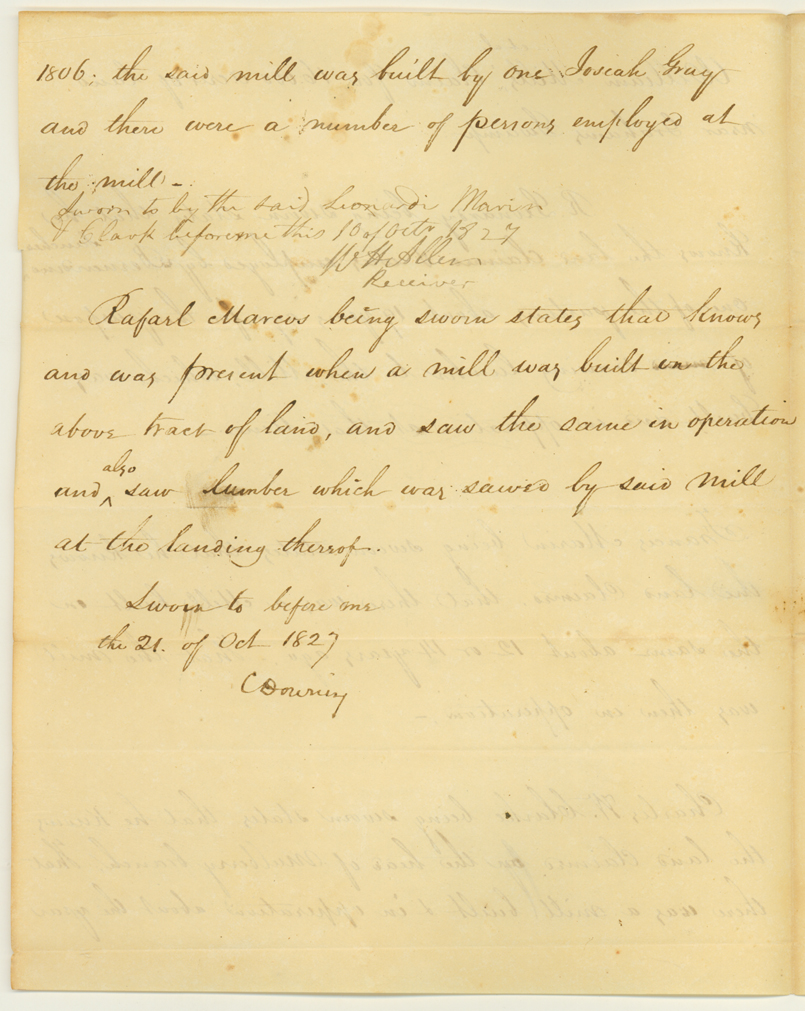 1806; the said mill was built by one Josiah Gray
and there were a number of persons employed at
the mill -
Sworn to by the said Leonardi Marin
& Clark before me this 10 of Octr. 1827
W H Allen
Receiver
Rafael Marcus being sworn states that knows
and was present when a mill was built on the
above tract of land, and saw the same in operation
and also saw lumber which was sawed by said mill
at the landing thereof.
Sworn to before me
the 21. of Oct 1827
C Downing